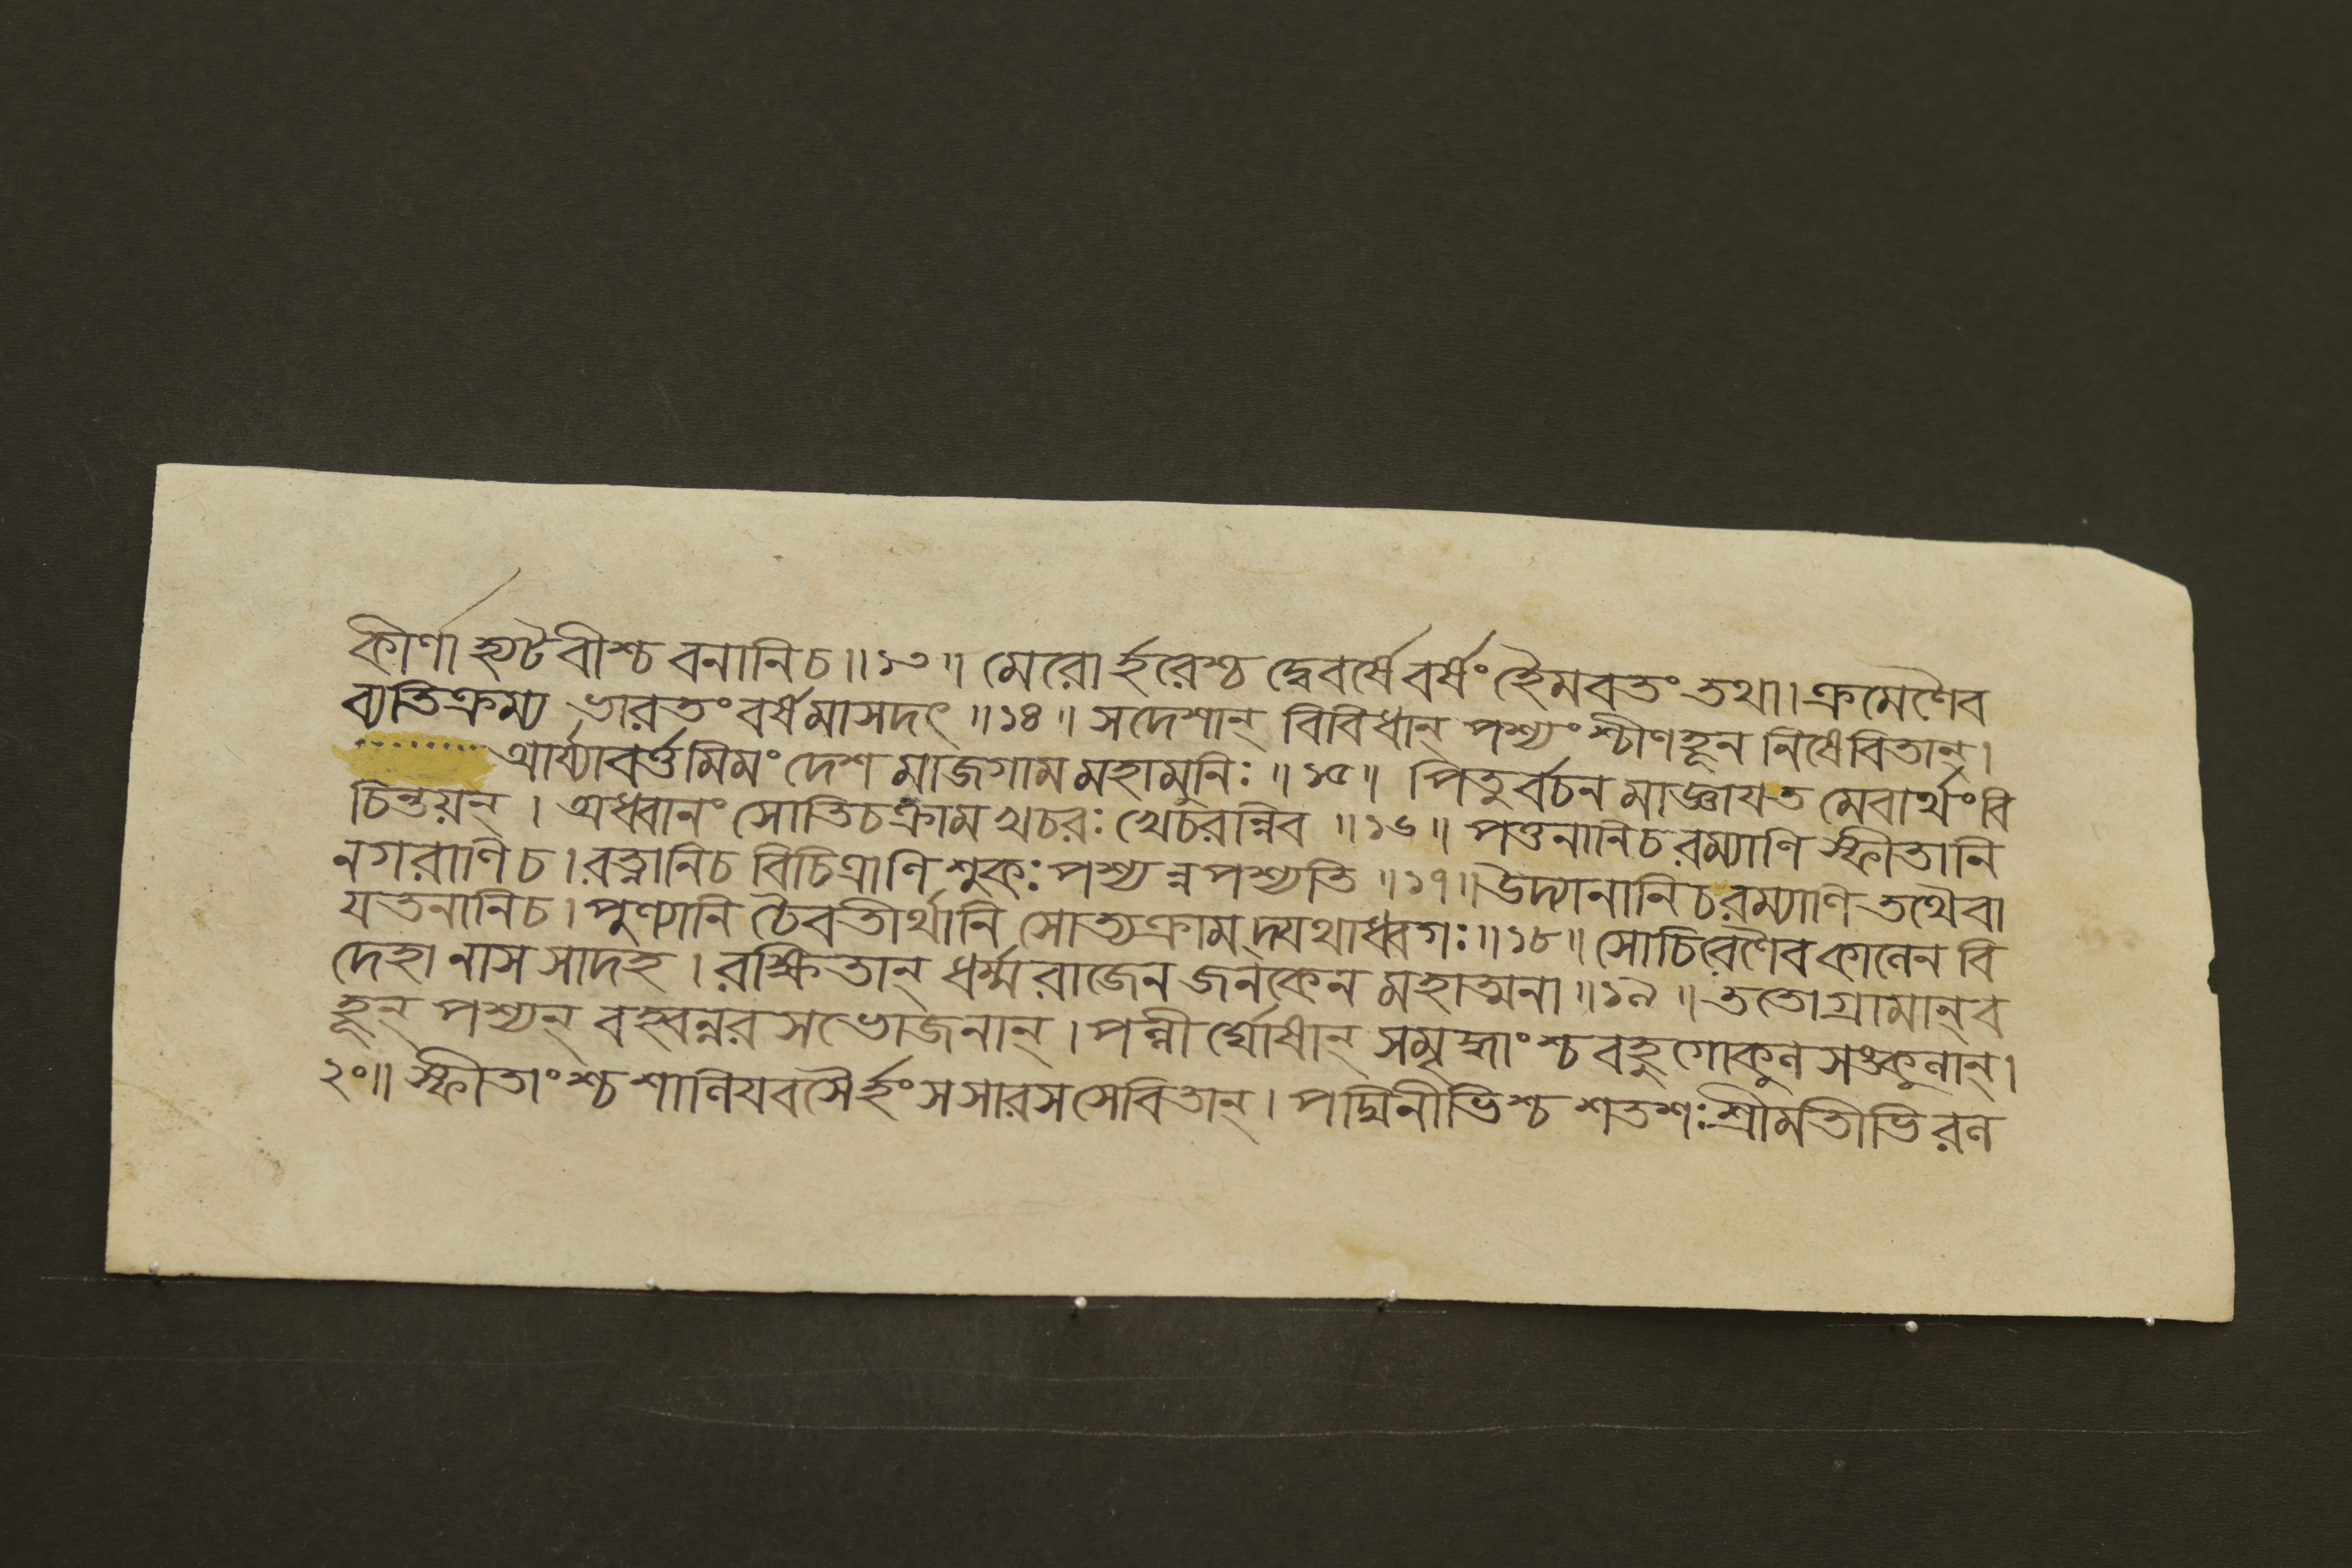 কীর্ণা হ্যটবীশ্চ বনানিচ॥১৩॥ মেরোর্হরেশ্চ দ্বেবর্ষে বর্ষং হৈমবতং তথা। ক্রমেণৈব
ব্যতিক্রম্য ভারতং বর্ষমাসদৎ॥১৪॥ সদেশান্ বিবিধান্ পশ্যংশ্চীণহূন নিষেবিতান্।
আর্য্যাবর্ত্তমিমং দেশ মাজগাম মহামুনিঃ॥১৫॥ পিতুর্বচন মাজ্ঞায়ত মেবার্থং বি
চিন্তয়ন্। অধ্বানং সোতিচক্রাম খচরঃ খেচরন্নিব॥১৬॥ পত্তনানিচ রম্যাণি স্ফীতানি
নগরাণিচ। রত্নানিচ বিচিত্রাণি শুকঃ পশ্যন্নপশ্যতি॥১৭॥ উদ্যানানিচ রম্যাণি তথৈবা
যতনানিচ। পুণ্যানি চৈবতীর্থানি সোত্যক্রাম দ্যথাধ্বগঃ॥১৮॥ সোচিরেণৈব কালেন বি
দেহা নাস সাদহ। রক্ষিতান্ ধর্ম্মরাজেন জনকেন মহাত্মনা॥১৯॥ ততো গ্রামান্ ব
হূন্ পশ্যন্ বহ্বন্নরসভোজনান্। পল্লীর্ঘোষান্ সমৃদ্ধাংশ্চ বহুগোকুল সঙ্কুলান্।
২০॥ স্ফীতাংশ্চ শালিযবসৈর্হংসসারসসেবিতান্। পদ্মিনীভিশ্চ শতশঃ শ্রীমতীভিরল